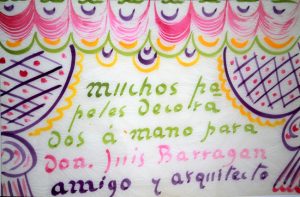 muchos pa
peles Decora
Dos á mano para
Don. Luis Barragan
amigo y arquitecto